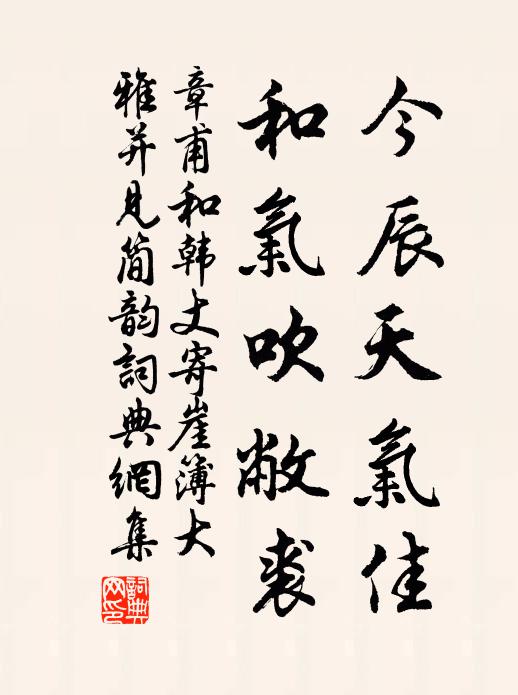 今辰天氣佳
和氣吹敝裘
章甫和韩丈寄崖簿大
雅并見简韵詞典網集
詞典网印